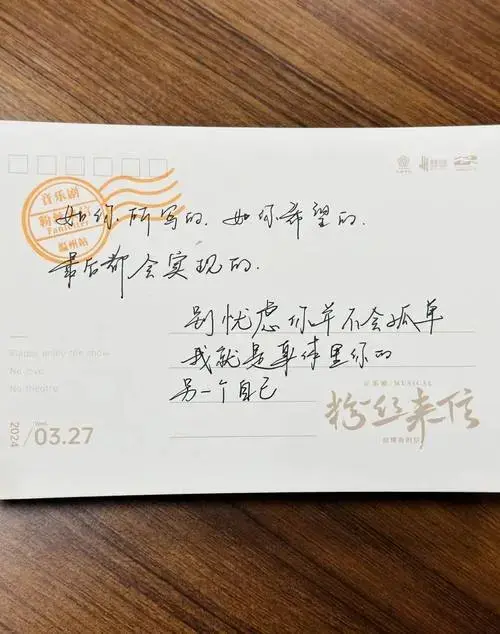 音乐剧
粉丝来信
Fan Letter
温州站
如你所写的.如你希望的.
最后都会实现的.
别忧虑你并不会孤单
我就是身体里你的
另一个自己
Please enjoy the show
No love
No theatre
2024
Wed.
/03.27
音乐剧/MUSICAL
粉丝来信